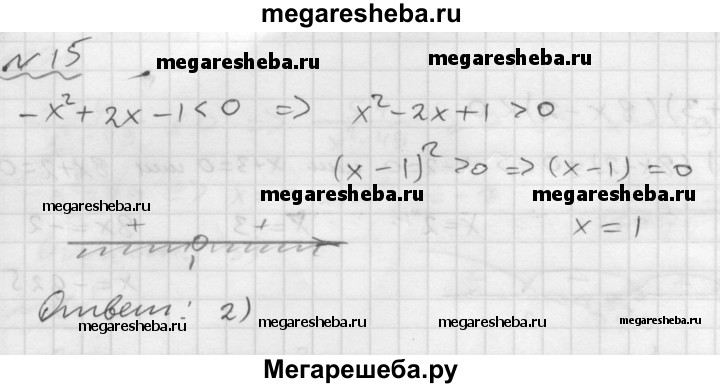 megaresheba.ru
N 15
megaresheba.ru
megaresheba.ru
-x²+2x-1<0 => x²-2x+1>0
(x-1)²>0 => (x-1)=0
megaresheba.ru
megaresheba.ru
megaresheba.ru
+ +
x=1
1
Ответ: 2)
megaresheba.ru
megaresheba.ru
megaresheba.ru
megaresheba.ru
Мегарешеба.ру